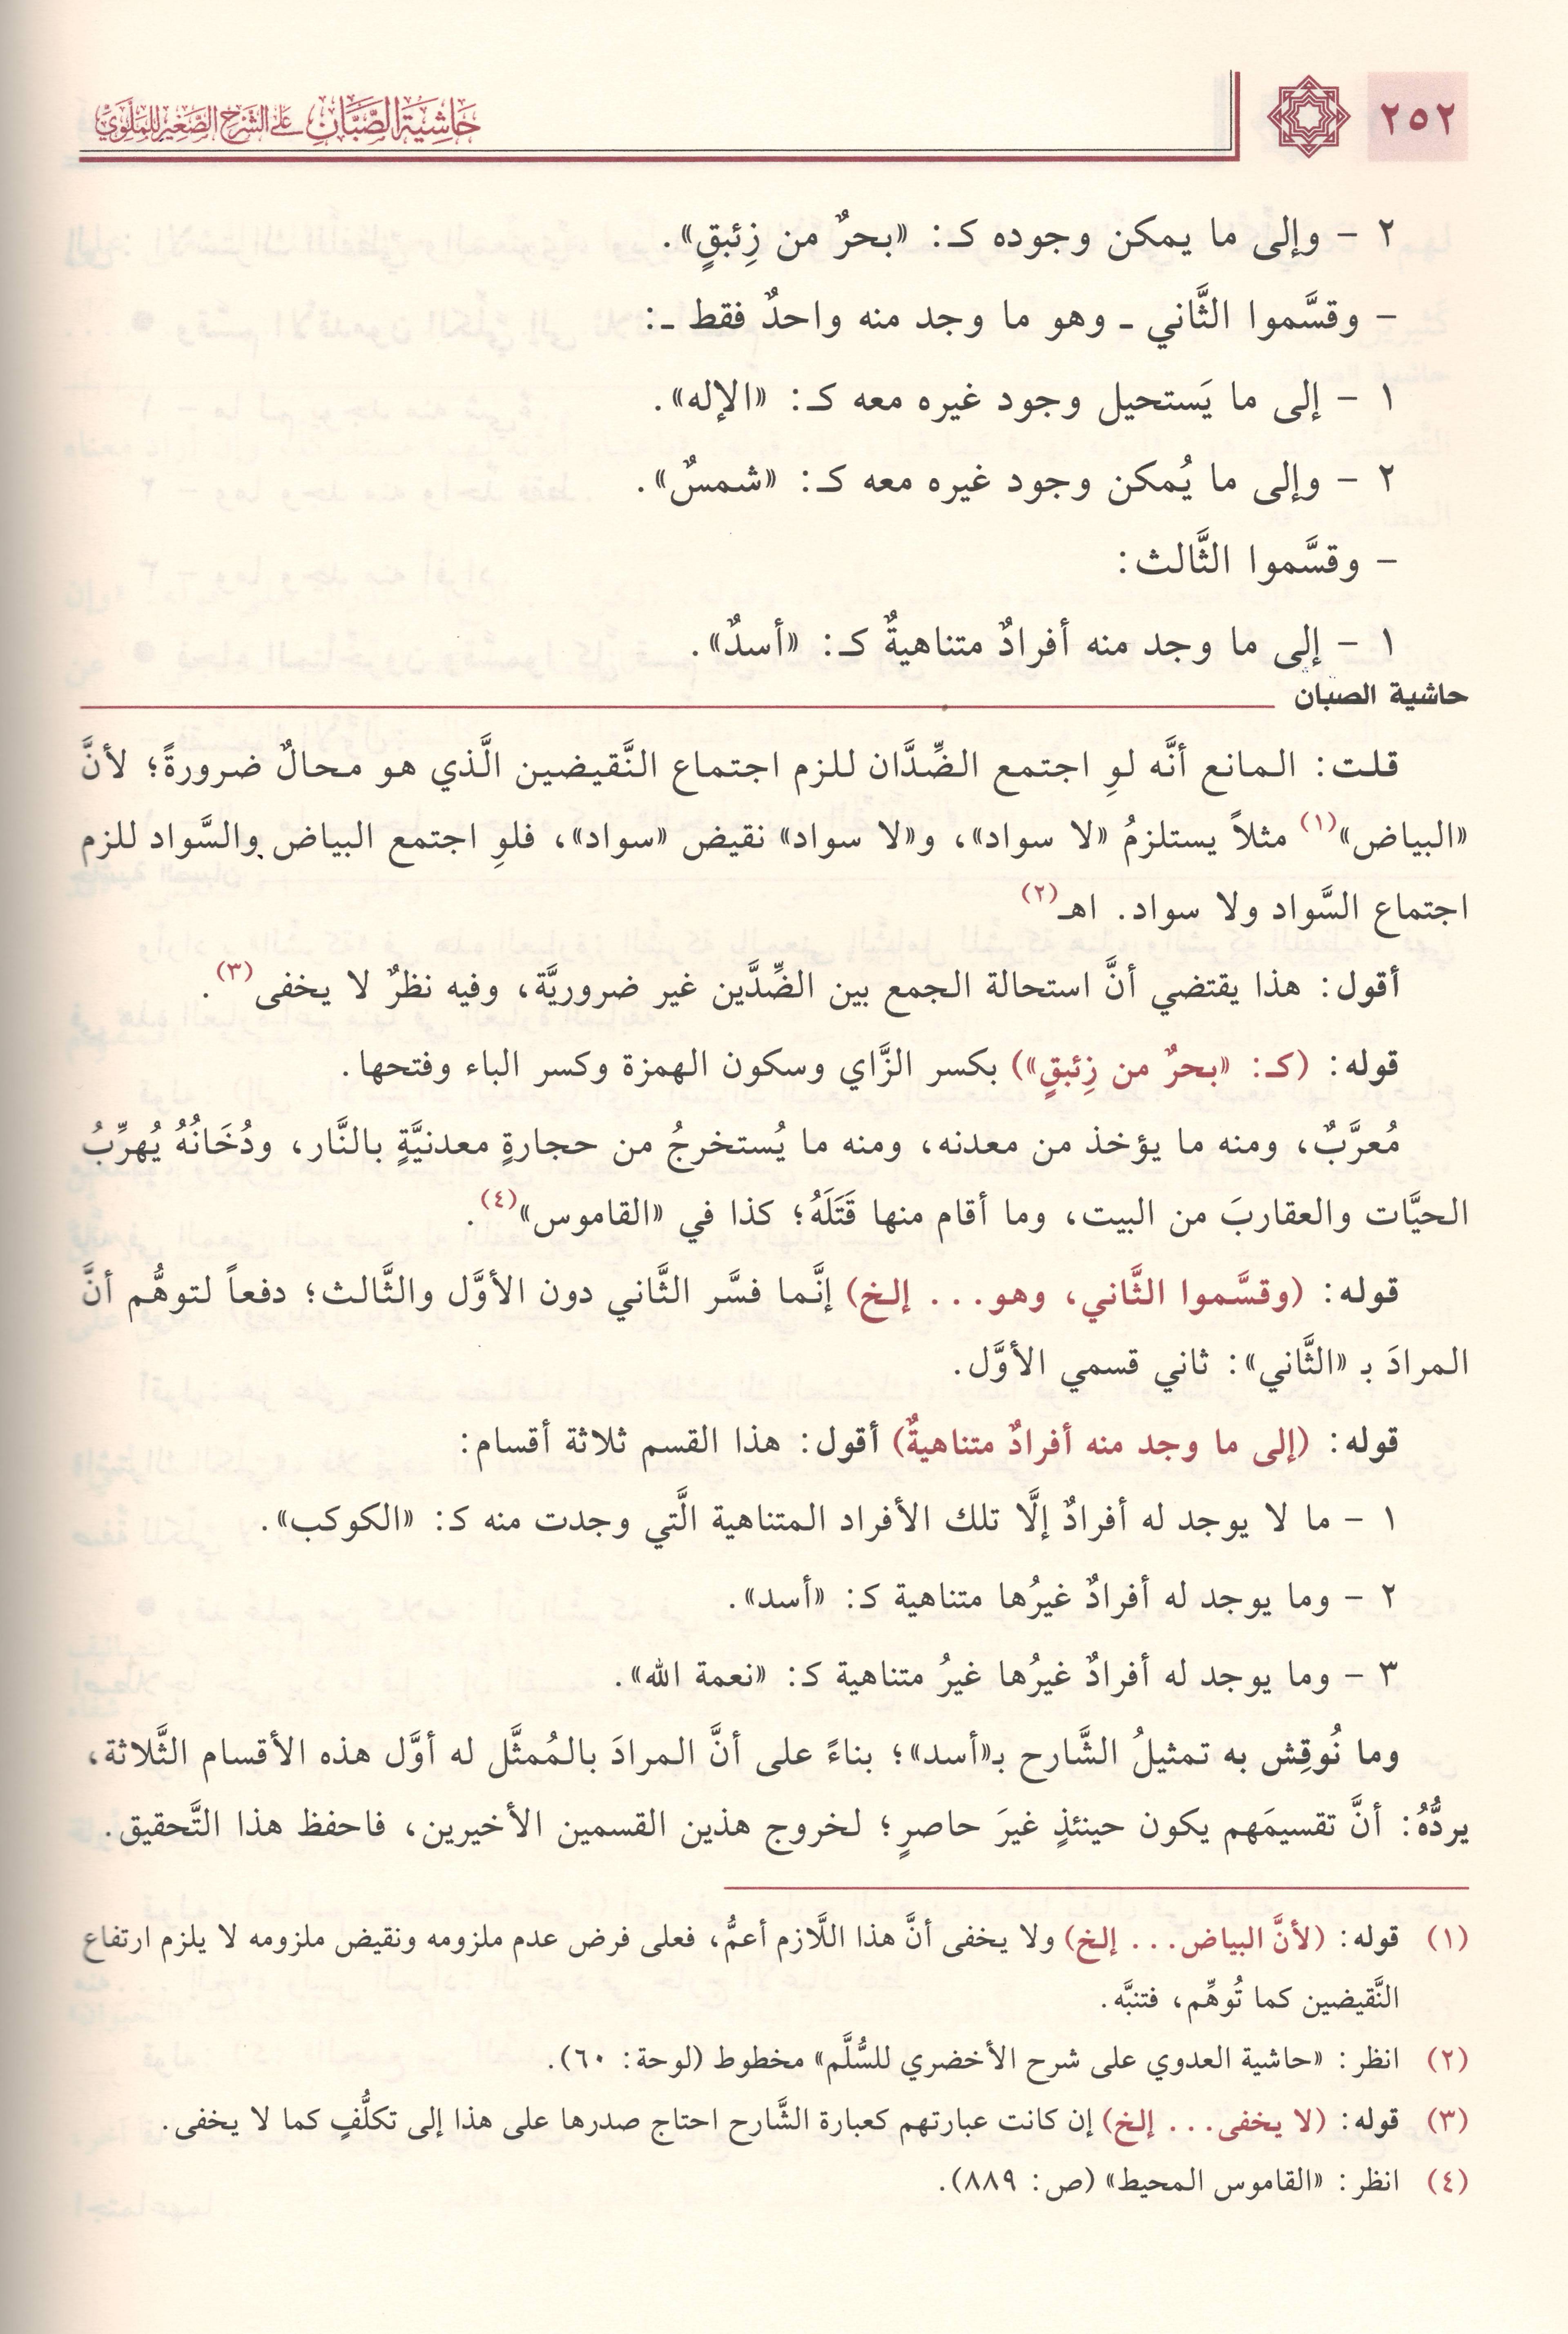 ٢٥٢
حاشية الصبان على الشرح الصغير للملوي
٢ - وإلى ما يمكن وجوده كـ: «بحرٌ من زِئبقٍ».
- وقسَّموا الثَّاني - وهو ما وجد منه واحدٌ فقط -:
١ - إلى ما يَستحيل وجود غيره معه كـ: «الإله».
٢ - وإلى ما يُمكن وجود غيره معه كـ: «شمسٌ».
- وقسَّموا الثَّالث:
١ - إلى ما وجد منه أفرادٌ متناهيةٌ كـ: «أسدٌ».
حاشية الصبان
قلت: المانع أنَّه لوِ اجتمع الضِّدَّان للزم اجتماع النَّقيضين الَّذي هو محالٌ ضرورةً؛ لأنَّ
«البياض»(١) مثلاً يستلزمُ «لا سواد»، و«لا سواد» نقيض «سواد»، فلوِ اجتمع البياض والسَّواد للزم
اجتماع السَّواد ولا سواد. اهـ(٢)
أقول: هذا يقتضي أنَّ استحالة الجمع بين الضِّدَّين غير ضروريَّة، وفيه نظرٌ لا يخفى(٣).
قوله: (كـ: «بحرٌ من زِئبقٍ») بكسر الزَّاي وسكون الهمزة وكسر الباء وفتحها.
مُعرَّبٌ، ومنه ما يؤخذ من معدنه، ومنه ما يُستخرجُ من حجارةٍ معدنيَّةٍ بالنَّار، ودُخَانُهُ يُهرِّبُ
الحيَّات والعقاربَ من البيت، وما أقام منها قَتَلَهُ؛ كذا في «القاموس»(٤).
قوله: (وقسَّموا الثَّاني، وهو... إلخ) إنَّما فسَّر الثَّاني دون الأوَّل والثَّالث؛ دفعاً لتوهُّم أنَّ
المرادَ بـ «الثَّاني»: ثاني قسمي الأوَّل.
قوله: (إلى ما وجد منه أفرادٌ متناهيةٌ) أقول: هذا القسم ثلاثة أقسام:
١ - ما لا يوجد له أفرادٌ إلَّا تلك الأفراد المتناهية الَّتي وجدت منه كـ: «الكوكب».
٢ - وما يوجد له أفرادٌ غيرُها متناهية كـ: «أسد».
٣ - وما يوجد له أفرادٌ غيرُها غيرُ متناهية كـ: «نعمة الله».
وما نُوقِش به تمثيلُ الشَّارح بـ«أسد»؛ بناءً على أنَّ المرادَ بالمُمثَّل له أوَّل هذه الأقسام الثَّلاثة،
يردُّهُ: أنَّ تقسيمَهم يكون حينئذٍ غيرَ حاصرٍ؛ لخروج هذين القسمين الأخيرين، فاحفظ هذا التَّحقيق.
(١) قوله: (لأنَّ البياض... إلخ) ولا يخفى أنَّ هذا اللَّازم أعمُّ، فعلى فرض عدم ملزومه ونقيض ملزومه لا يلزم ارتفاع
النَّقيضين كما تُوهِّم، فتنبَّه.
(٢) انظر: «حاشية العدوي على شرح الأخضري للسُّلَّم» مخطوط (لوحة: ٦٠).
(٣) قوله: (لا يخفى... إلخ) إن كانت عبارتهم كعبارة الشَّارح احتاج صدرها على هذا إلى تكلُّفٍ كما لا يخفى.
(٤) انظر: «القاموس المحيط» (ص: ٨٨٩).